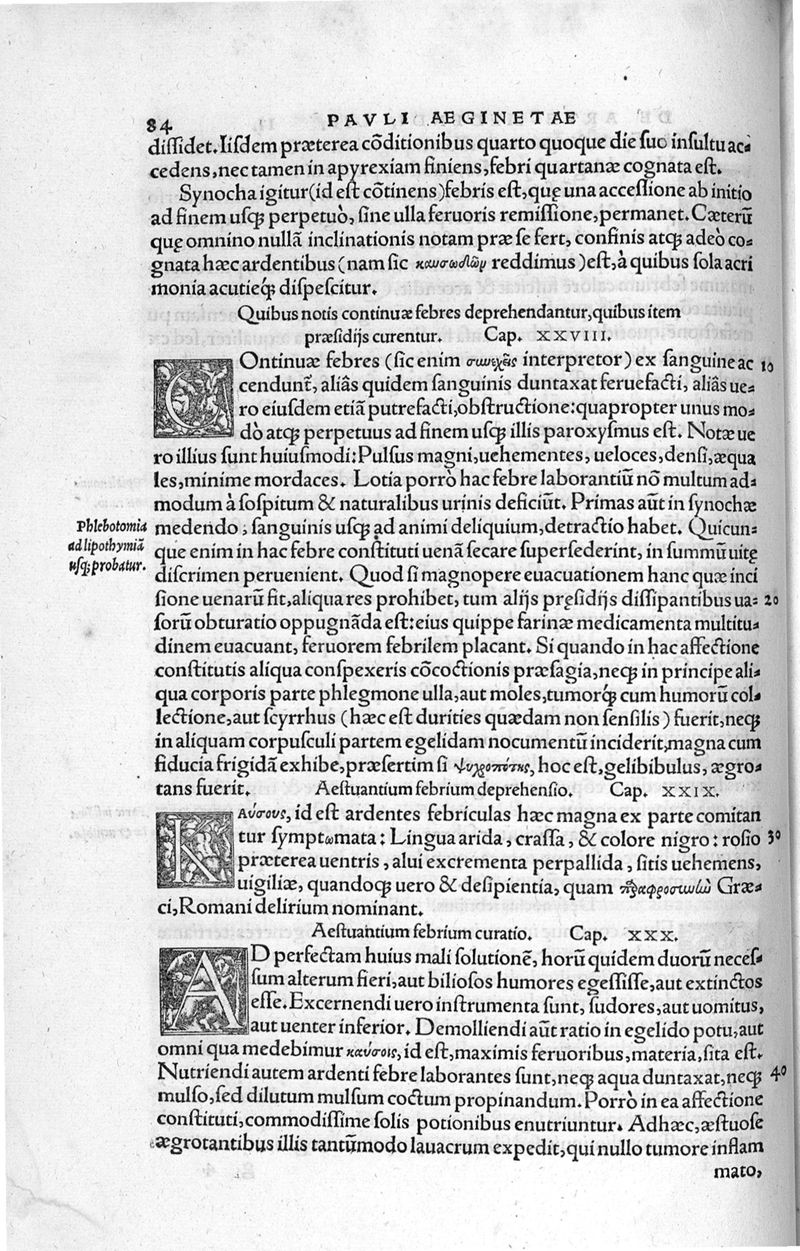 84
PAVLI AEGINETAE
dissidet. Iisdem præterea cõditionibus quarto quoque die suo insultu ac-
cedens, nec tamen in apyrexiam finiens, febri quartanæ cognata est.
Synocha igitur (id est cõtinens) febris est, quę una accessione ab initio
ad finem usq; perpetuò, sine ulla feruoris remissione, permanet. Cæterũ
quę omnino nullã inclinationis notam præ se fert, confinis atq; adeò co-
gnata hæc ardentibus (nam sic καυσωδῶν reddimus) est, à quibus sola acri
monia acutieq́; dispescitur.
Quibus notis continuæ febres deprehendantur, quibus item
præsidijs curentur. Cap. XXVIII.
COntinuæ febres (sic enim συνεχεῖς interpretor) ex sanguine ac 10
cendunt̃, aliâs quidem sanguinis duntaxat feruefacti, aliâs ue-
ro eiusdem etiã putrefacti, obstructione: quapropter unus mo-
dò atq; perpetuus ad finem usq; illis paroxysmus est. Notæ ue
ro illius sunt huiusmodi: Pulsus magni, uehementes, ueloces, densi, æqua
les, minime mordaces. Lotia porrò hac febre laborantiũ nõ multum ad-
modum à sospitum & naturalibus urinis deficiũt. Primas aũt in synochæ
Phlebotomia
ad lipothymiã
usq; probatur.
medendo, sanguinis usq; ad animi deliquium, detractio habet. Quicun-
que enim in hac febre constituti uenã secare supersederint, in summũ uitę
discrimen peruenient. Quod si magnopere euacuationem hanc quæ inci
sione uenarũ fit, aliqua res prohibet, tum alijs pręsidijs dissipantibus ua- 20
sorũ obturatio oppugnãda est: eius quippe farinæ medicamenta multitu-
dinem euacuant, feruorem febrilem placant. Si quando in hac affectione
constitutis aliqua conspexeris cõcoctionis præsagia, neq; in principe ali-
qua corporis parte phlegmone ulla, aut moles, tumorq́; cum humorũ col-
lectione, aut scyrrhus (hæc est durities quædam non sensilis) fuerit, neq;
in aliquam corpusculi partem egelidam nocumentũ inciderit, magna cum
fiducia frigidã exhibe, præsertim si ψυχροπότης, hoc est, gelibibulus, ægro-
tans fuerit. Aestuantium febrium deprehensio. Cap. XXIX.
ΚΑύσους, id est ardentes febriculas hæc magna ex parte comitan
tur symptωmata: Lingua arida, crassa, & colore nigro: rosio 30
præterea uentris, alui excrementa perpallida, sitis uehemens,
uigiliæ, quandoq; uero & desipientia, quam παραφροσυνὼ Græ-
ci, Romani delirium nominant.
Aestuantium febrium curatio. Cap. XXX.
AD perfectam huius mali solutionẽ, horũ quidem duorũ neces-
sum alterum fieri, aut biliosos humores egessisse, aut extinctos
esse. Excernendi uero instrumenta sunt, sudores, aut uomitus,
aut uenter inferior. Demolliendi aũt ratio in egelido potu, aut
omni qua medebimur καύσοις, id est, maximis feruoribus, materia, sita est.
Nutriendi autem ardenti febre laborantes sunt, neq; aqua duntaxat, neq; 40
mulso, sed dilutum mulsum coctum propinandum. Porrò in ea affectione
constituti, commodissime solis potionibus enutriuntur. Adhæc, æstuose
ægrotantibus illis tantũmodo lauacrum expedit, qui nullo tumore inflam
mato,